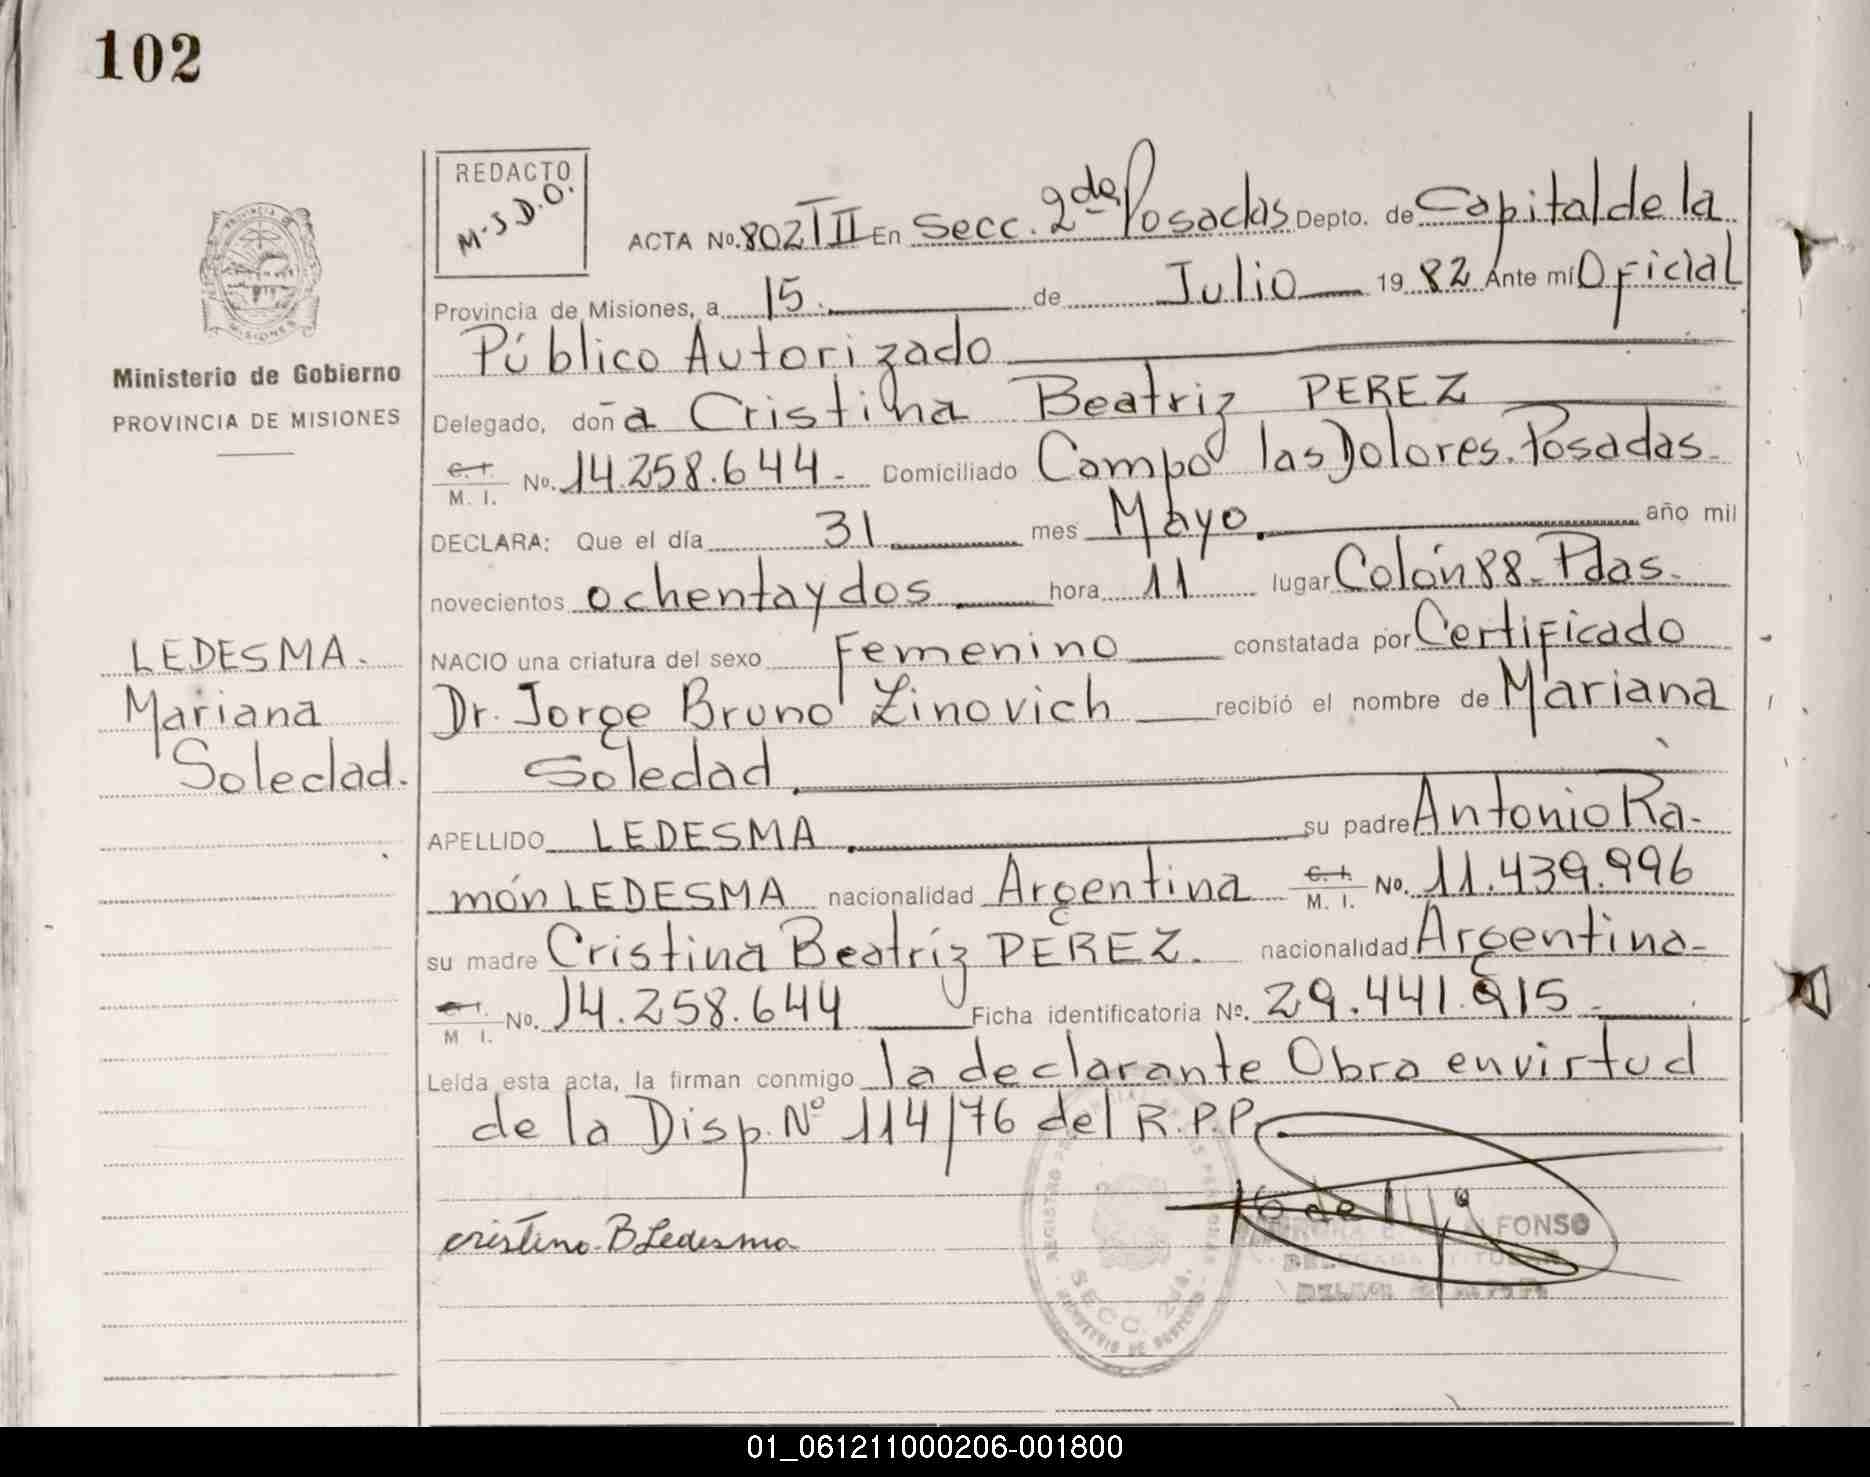 102
REDACTO
M.S.D.O.
ACTA No. 802 T III En Secc. 2da Posadas Depto. de Capital de la
Provincia de Misiones, a 15. de Julio 19 82 Ante mí Oficial
Público Autorizado
Ministerio de Gobierno
PROVINCIA DE MISIONES
Delegado, doña Cristina Beatriz PEREZ
C. I.
M. I. No. 14.258.644- Domiciliado Campo las Dolores. Posadas-
DECLARA: Que el día 31 mes Mayo. año mil
novecientos ochentaydos hora 11 lugar Colón 88- Pdas.
LEDESMA.
Mariana
Soledad.
NACIO una criatura del sexo Femenino constatada por Certificado
Dr. Jorge Bruno Zinovich recibió el nombre de Mariana
Soledad
APELLIDO LEDESMA su padre Antonio Ra-
món LEDESMA nacionalidad Argentina C. I. M. I. No. 11.439.996
su madre Cristina Beatríz PEREZ. nacionalidad Argentina-
M I. No. 14.258.644 Ficha identificatoria Nº. 29.441.915
Leída esta acta, la firman conmigo la declarante Obra en virtud
de la Disp. Nº 114/76 del R.P.P.
cristina B Ledesma
ALFONSO
SECC. 2da.
01_061211000206-001800